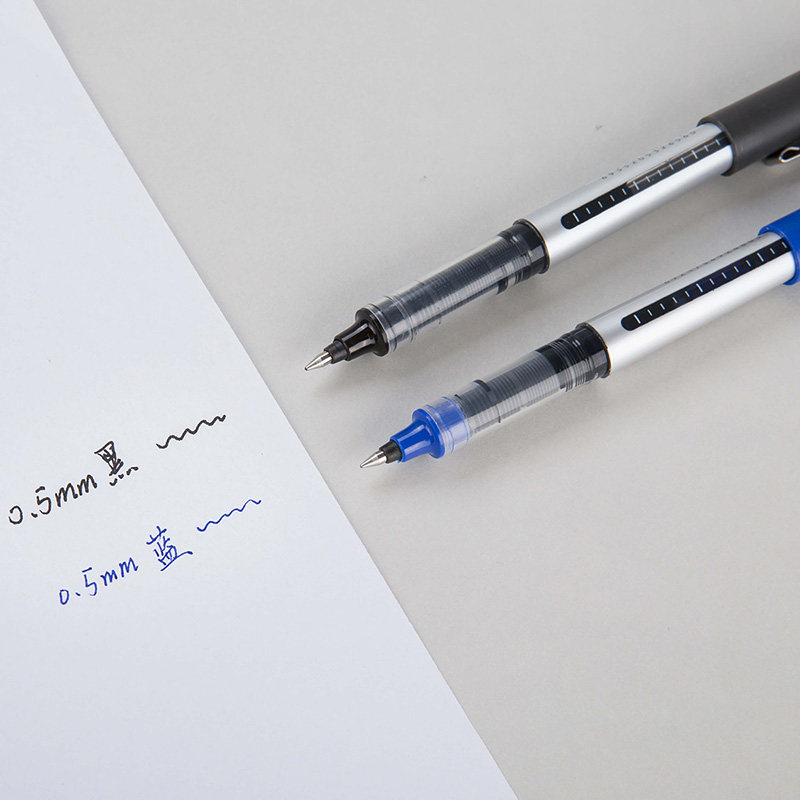 0.5mm 黑
0.5mm 蓝